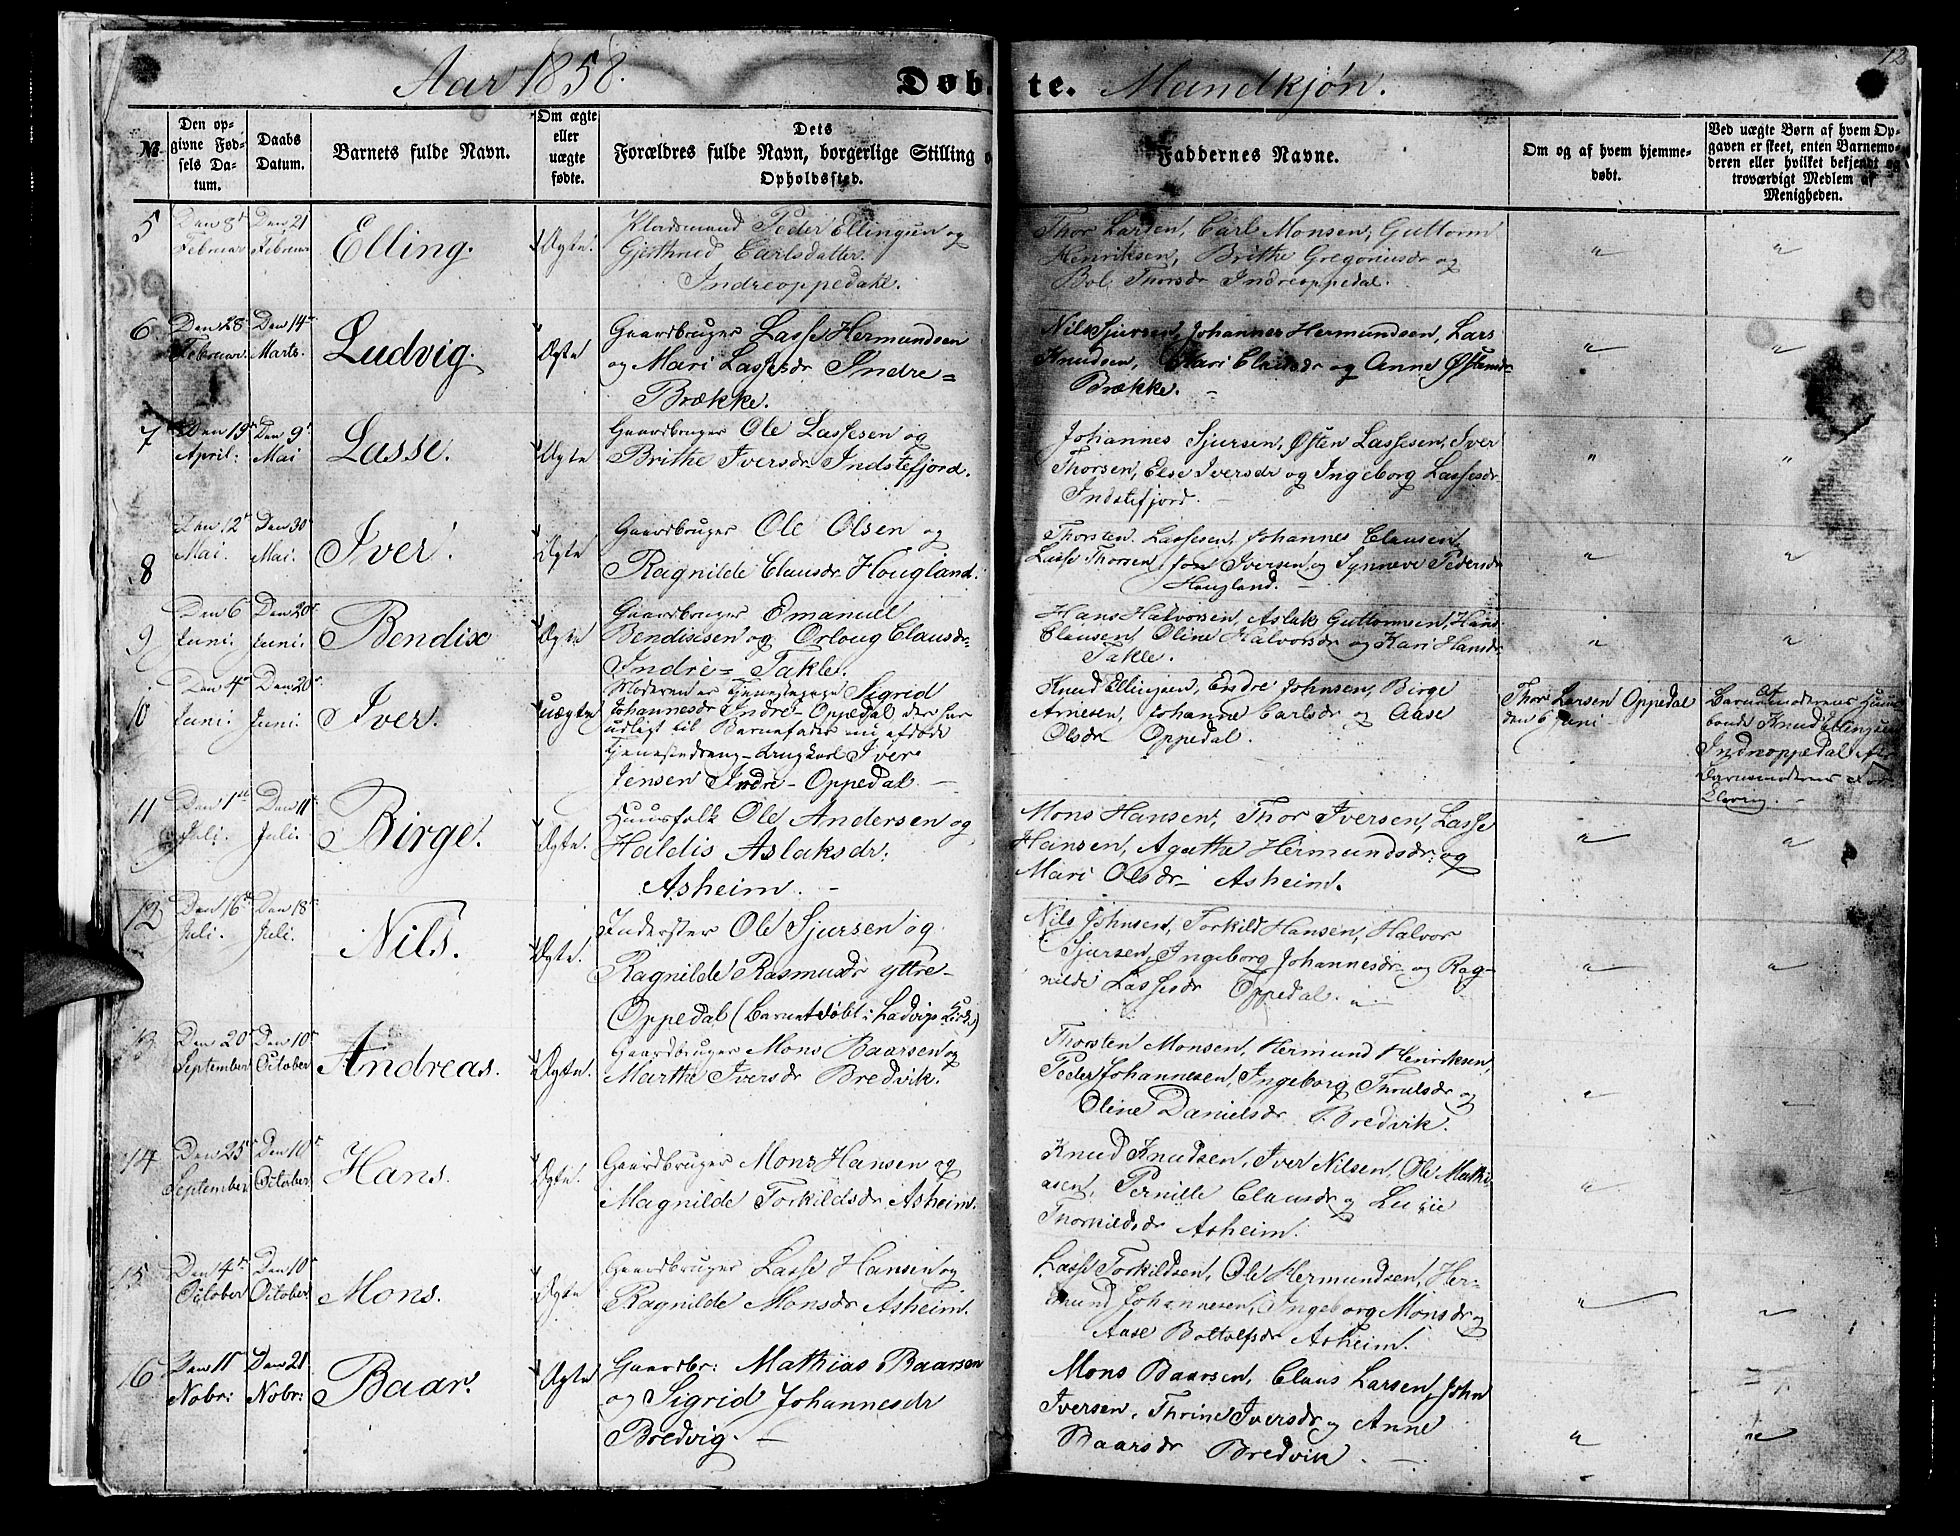 12
Aar 1858.
Døb- te.
Mandkjøn.
№
Den op-
givne Fød-
sels Da-
tum.
Daabs
Datum.
Barnets fulde Navn.
Om ægte
eller
uægte
fødte.
Dets
Forældres fulde Navn, borgerlige Stilling o
Opholdssted.
Faddernes Navne.
Om og af hvem hjemme-
døbt.
Ved uægte Børn af hvem Op-
gaven er skeet, enten Barnemo-
deren eller hvilket bekjendt og
troværdigt Medlem af
Menigheden.
5
Den 8de
Februar
Den 21
Februar
Elling.
Ægte.
Pladsmand Peder Ellingsen og
Gjerthrud Carlsdatter.
Indreoppedahl.
Thor Larsen, Carl Monsen, Guttorm
Henriksen, Brithe Gregoriusdr og
Bol. Thorsdr Indreoppedal.
"
"
6
Den 28
Februar.
Den 14
Marts.
Ludvig.
Ægte
Gaardbruger Lasse Hermundsen
og Mari Lassesdr Indre=
Brække.
Nils Sjursen, Johannes Hermundsen, Lars
Knudsen, Mari Clausdr og Anne Østensdr
Brække. -
"
"
7
Den 19
April:
Den 9
Mai
Lasse.
Ægte
Gaardbruger Ole Lassesen og
Brithe Iversdr Indstefjord.
Johannes Sjursen, Østen Lassesen, Iver
Thorsen, Else Iversdr og Ingeborg Lassesdr
Indstefjord. -
"
"
8
Den 12
Mai.
Den 30
Mai.
Iver.
Ægte
Gaardbruger Ole Olsen og
Ragnilde Clausdr Hougland.
Thorsten Lassesen, Johannes Clausen,
Lasse Thorsen, Jon Iversen og Synneve Pedersdr
Hougland. -
"
"
9
Den 6
Juni.
Den 20
Juni.
Bendix
Ægte.
Gaardbruger Emanuel
Bendixsen og Orloug Clausdr
Indre= Takle.
Hans Halvorsen, Aslak Guttormsen, Hans
Clausen, Oline Halvorsdr og Kari Hansdr
Takle.
"
"
10
Den 4
Juni.
Den 20
Juni.
Iver.
uægte
Moderen er Tjenestepige Sigrid
Johannesdr Indre-Oppedal der har
udlagt til Barnefader nu afdøde
Tjenestedreng - Ungkarl Iver
Jensen Indre-Oppedal. -
Knud Ellingsen, Endre Johnsen, Birge
Arnesen, Johanne Carlsdr og Aase
Olsdr Oppedal.
Thor Larsen Oppedal
den 6 Juni
Af
Barnemoderens Huus
bonde Knud Ellingsen
Indreoppedal
Barnemoderens
11
Den 1ste
Juli.
Den 11
Juli.
Birge.
Ægte.
Huusfolk Ole Andersen og
Haldis Aslaksdr.
Asheim. -
Mons Hansen, Thor Iversen, Lasse
Hansen, Agathe Hermundsdr. og
Mari Olsdr Asheim.
"
"
12
Den 16
Juli.
Den 18
Juli.
Nils.
Ægte.
Inderster Ole Sjursen og
Ragnilde Rasmusdr yttre-
Oppedal (Barnet døbt i Ladvigs Kirke)
Nils Johnsen, Torkild Hansen, Halvor
Sjursen, Ingeborg Johannesdr og Rag-
nilde Lassesdr Oppedal.
"
"
13
Den 20
September
Den 10
October
Andreas.
Ægte.
Gaardbruger Mons Baarsen og
Marthe Iversdr Bredvik.
Thorsten Monsen, Hermund Henriksen,
Peder Johannesen, Ingeborg Thrulsdr og
Oline Danielsdr Bredvik.
"
"
14
Den 25
September
Den 10
October
Hans.
Ægte.
Gaardbruger Mons Hansen og
Magnilde Torkildsdr Asheim.
Knud Knudsen, Iver Nilsen, Ole Mathi-
asen, Pernille Clausdr og Lucie
Thorkildsdr Asheim.
"
"
15
Den 4de
October
Den 10
October
Mons.
Ægte
Gaardbruger Lasse Hansen og
Ragnilde Monsdr Asheim.
Lasse Torkildsen, Ole Hermundsen, Her-
mund Johannesen, Ingeborg Monsdr og
Aase Boltolfsdr Asheim.
"
"
16
Den 11
Nobr:
Den 21
Nobr:
Baar.
Ægte
Gaardbr: Mathias Baarsen
og Sigrid Johannesdr
Bredvig. -
Mons Baarsen, Claus Larsen, John
Iversen, Thrine Iversdr og Anne
Baarsdr Bredvik. -
"
"